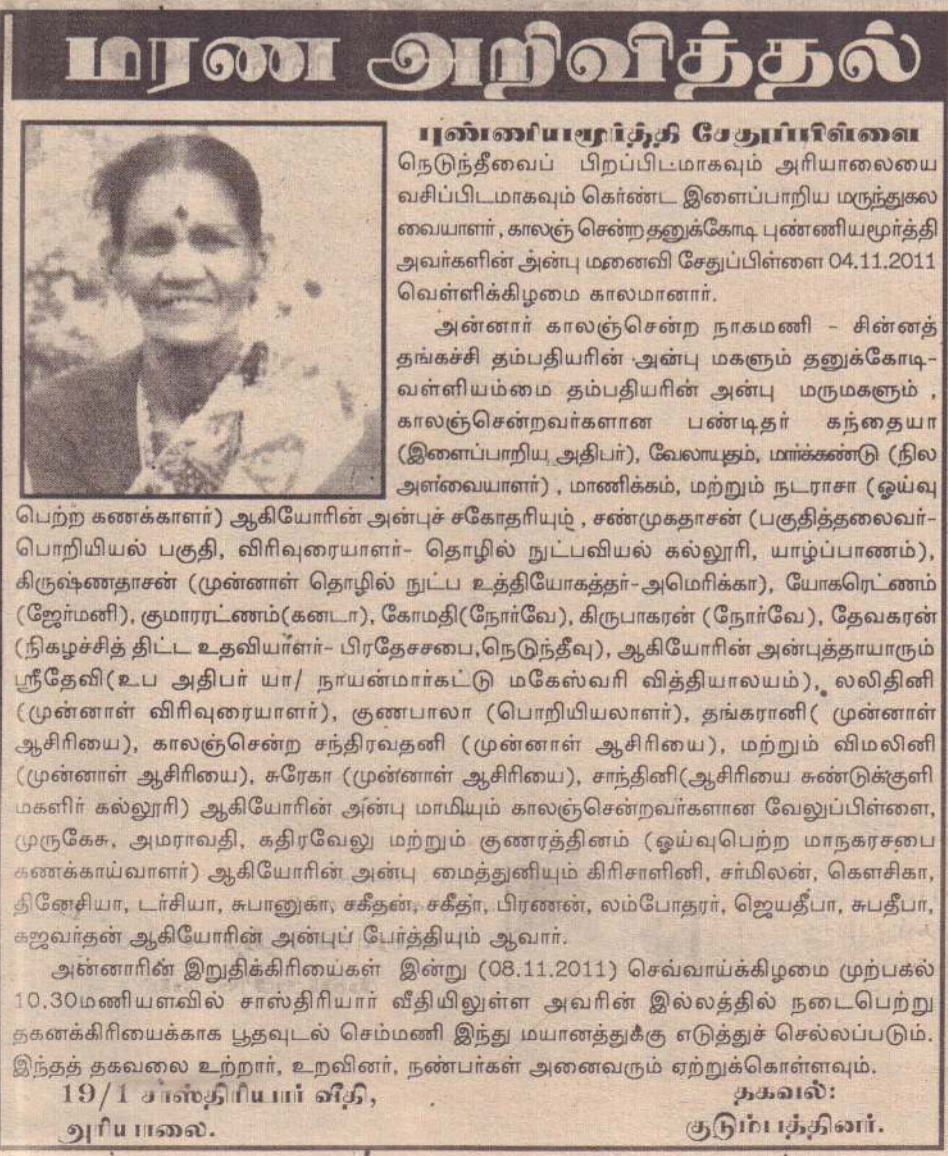 மரண அறிவித்தல்
புண்ணியமூர்த்தி சேதுப்பிள்ளை
நெடுந்தீவைப் பிறப்பிடமாகவும் அரியாலையை
வசிப்பிடமாகவும் கொண்ட இளைப்பாறிய மருந்துகல
வையாளர், காலஞ் சென்ற தனுக்கோடி புண்ணியமூர்த்தி
அவர்களின் அன்பு மனைவி சேதுப்பிள்ளை 04.11.2011
வெள்ளிக்கிழமை காலமானார்.
அன்னார் காலஞ்சென்ற நாகமணி - சின்னத்
தங்கச்சி தம்பதியரின் அன்பு மகளும் தனுக்கோடி-
வள்ளியம்மை தம்பதியரின் அன்பு மருமகளும் ,
காலஞ்சென்றவர்களான பண்டிதர் கந்தையா
(இளைப்பாறிய அதிபர்), வேலாயுதம், மார்க்கண்டு (நில
அளவையாளர்) , மாணிக்கம், மற்றும் நடராசா (ஓய்வு
பெற்ற கணக்காளர்) ஆகியோரின் அன்புச் சகோதரியும் , சண்முகதாசன் (பகுதித்தலைவர்-
பொறியியல் பகுதி, விரிவுரையாளர்- தொழில் நுட்பவியல் கல்லூரி, யாழ்ப்பாணம்),
கிருஷ்ணதாசன் (முன்னாள் தொழில் நுட்ப உத்தியோகத்தர்-அமெரிக்கா), யோகரெட்ணம்
(ஜேர்மனி), குமாரரட்ணம்(கனடா), கோமதி(நோர்வே), கிருபாகரன் (நோர்வே), தேவகரன்
(நிகழச்சித் திட்ட உதவியாளர்- பிரதேசசபை,நெடுந்தீவு), ஆகியோரின் அன்புத்தாயாரும்
ஸ்ரீதேவி(உப அதிபர் யா/ நாயன்மார்கட்டு மகேஸ்வரி வித்தியாலயம்), லலிதினி
(முன்னாள் விரிவுரையாளர்), குணபாலா (பொறியியலாளர்), தங்கரானி( முன்னாள்
ஆசிரியை), காலஞ்சென்ற சந்திரவதனி (முன்னாள் ஆசிரியை), மற்றும் விமலினி
(முன்னாள் ஆசிரியை), சுரேகா (முன்னாள் ஆசிரியை), சாந்தினி(ஆசிரியை சுண்டுக்குளி
மகளிர் கல்லூரி) ஆகியோரின் அன்பு மாமியும் காலஞ்சென்றவர்களான வேலுப்பிள்ளை,
முருகேசு, அமராவதி, கதிரவேலு மற்றும் குணரத்தினம் (ஓய்வுபெற்ற மாநகரசபை
கணக்காய்வாளர்) ஆகியோரின் அன்பு மைத்துனியும் கிரிசாளினி, சர்மிலன், கௌசிகா,
தினேசியா, டர்சியா, சுபானுகா, சகீதன், சகீதா, பிரணன், லம்போதரர், ஜெயதீபா, சுபதீபா,
கஜவர்தன் ஆகியோரின் அன்புப் பேர்த்தியும் ஆவார்.
அன்னாரின் இறுதிக்கிரியைகள் இன்று (08.11.2011) செவ்வாய்க்கிழமை முற்பகல்
10.30மணியளவில் சாஸ்திரியார் வீதியிலுள்ள அவரின் இல்லத்தில் நடைபெற்று
தகனக்கிரியைக்காக பூதவுடல் செம்மணி இந்து மயானத்துக்கு எடுத்துச் செல்லப்படும்.
இந்தத் தகவலை உற்றார், உறவினர், நண்பர்கள் அனைவரும் ஏற்றுக்கொள்ளவும்.
19/1 சாஸ்திரியார் வீதி,
அரியாலை.
தகவல்:
குடும்பத்தினர்.